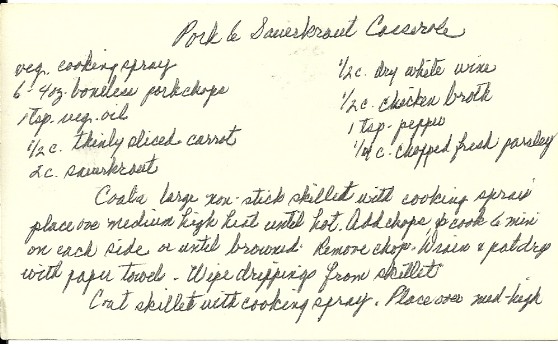 Pork & Sauerkraut Casserole
veg. cooking spray
6 - 4oz. boneless porkchops
1 tsp. veg. oil
1/2 c. thinly sliced carrot
2 c. sauerkraut
1/2 c. dry white wine
1/2 c. chicken broth
1 tsp. pepper
1/4 c. chopped fresh parsley
Coat a large non-stick skillet with cooking spray
place over medium high heat until hot. Add chops, & cook 6 min
on each side or until browned. Remove chop. Drain & pat dry
with paper towel. Wipe drippings from skillet
Coat skillet with cooking spray. Place over med-high